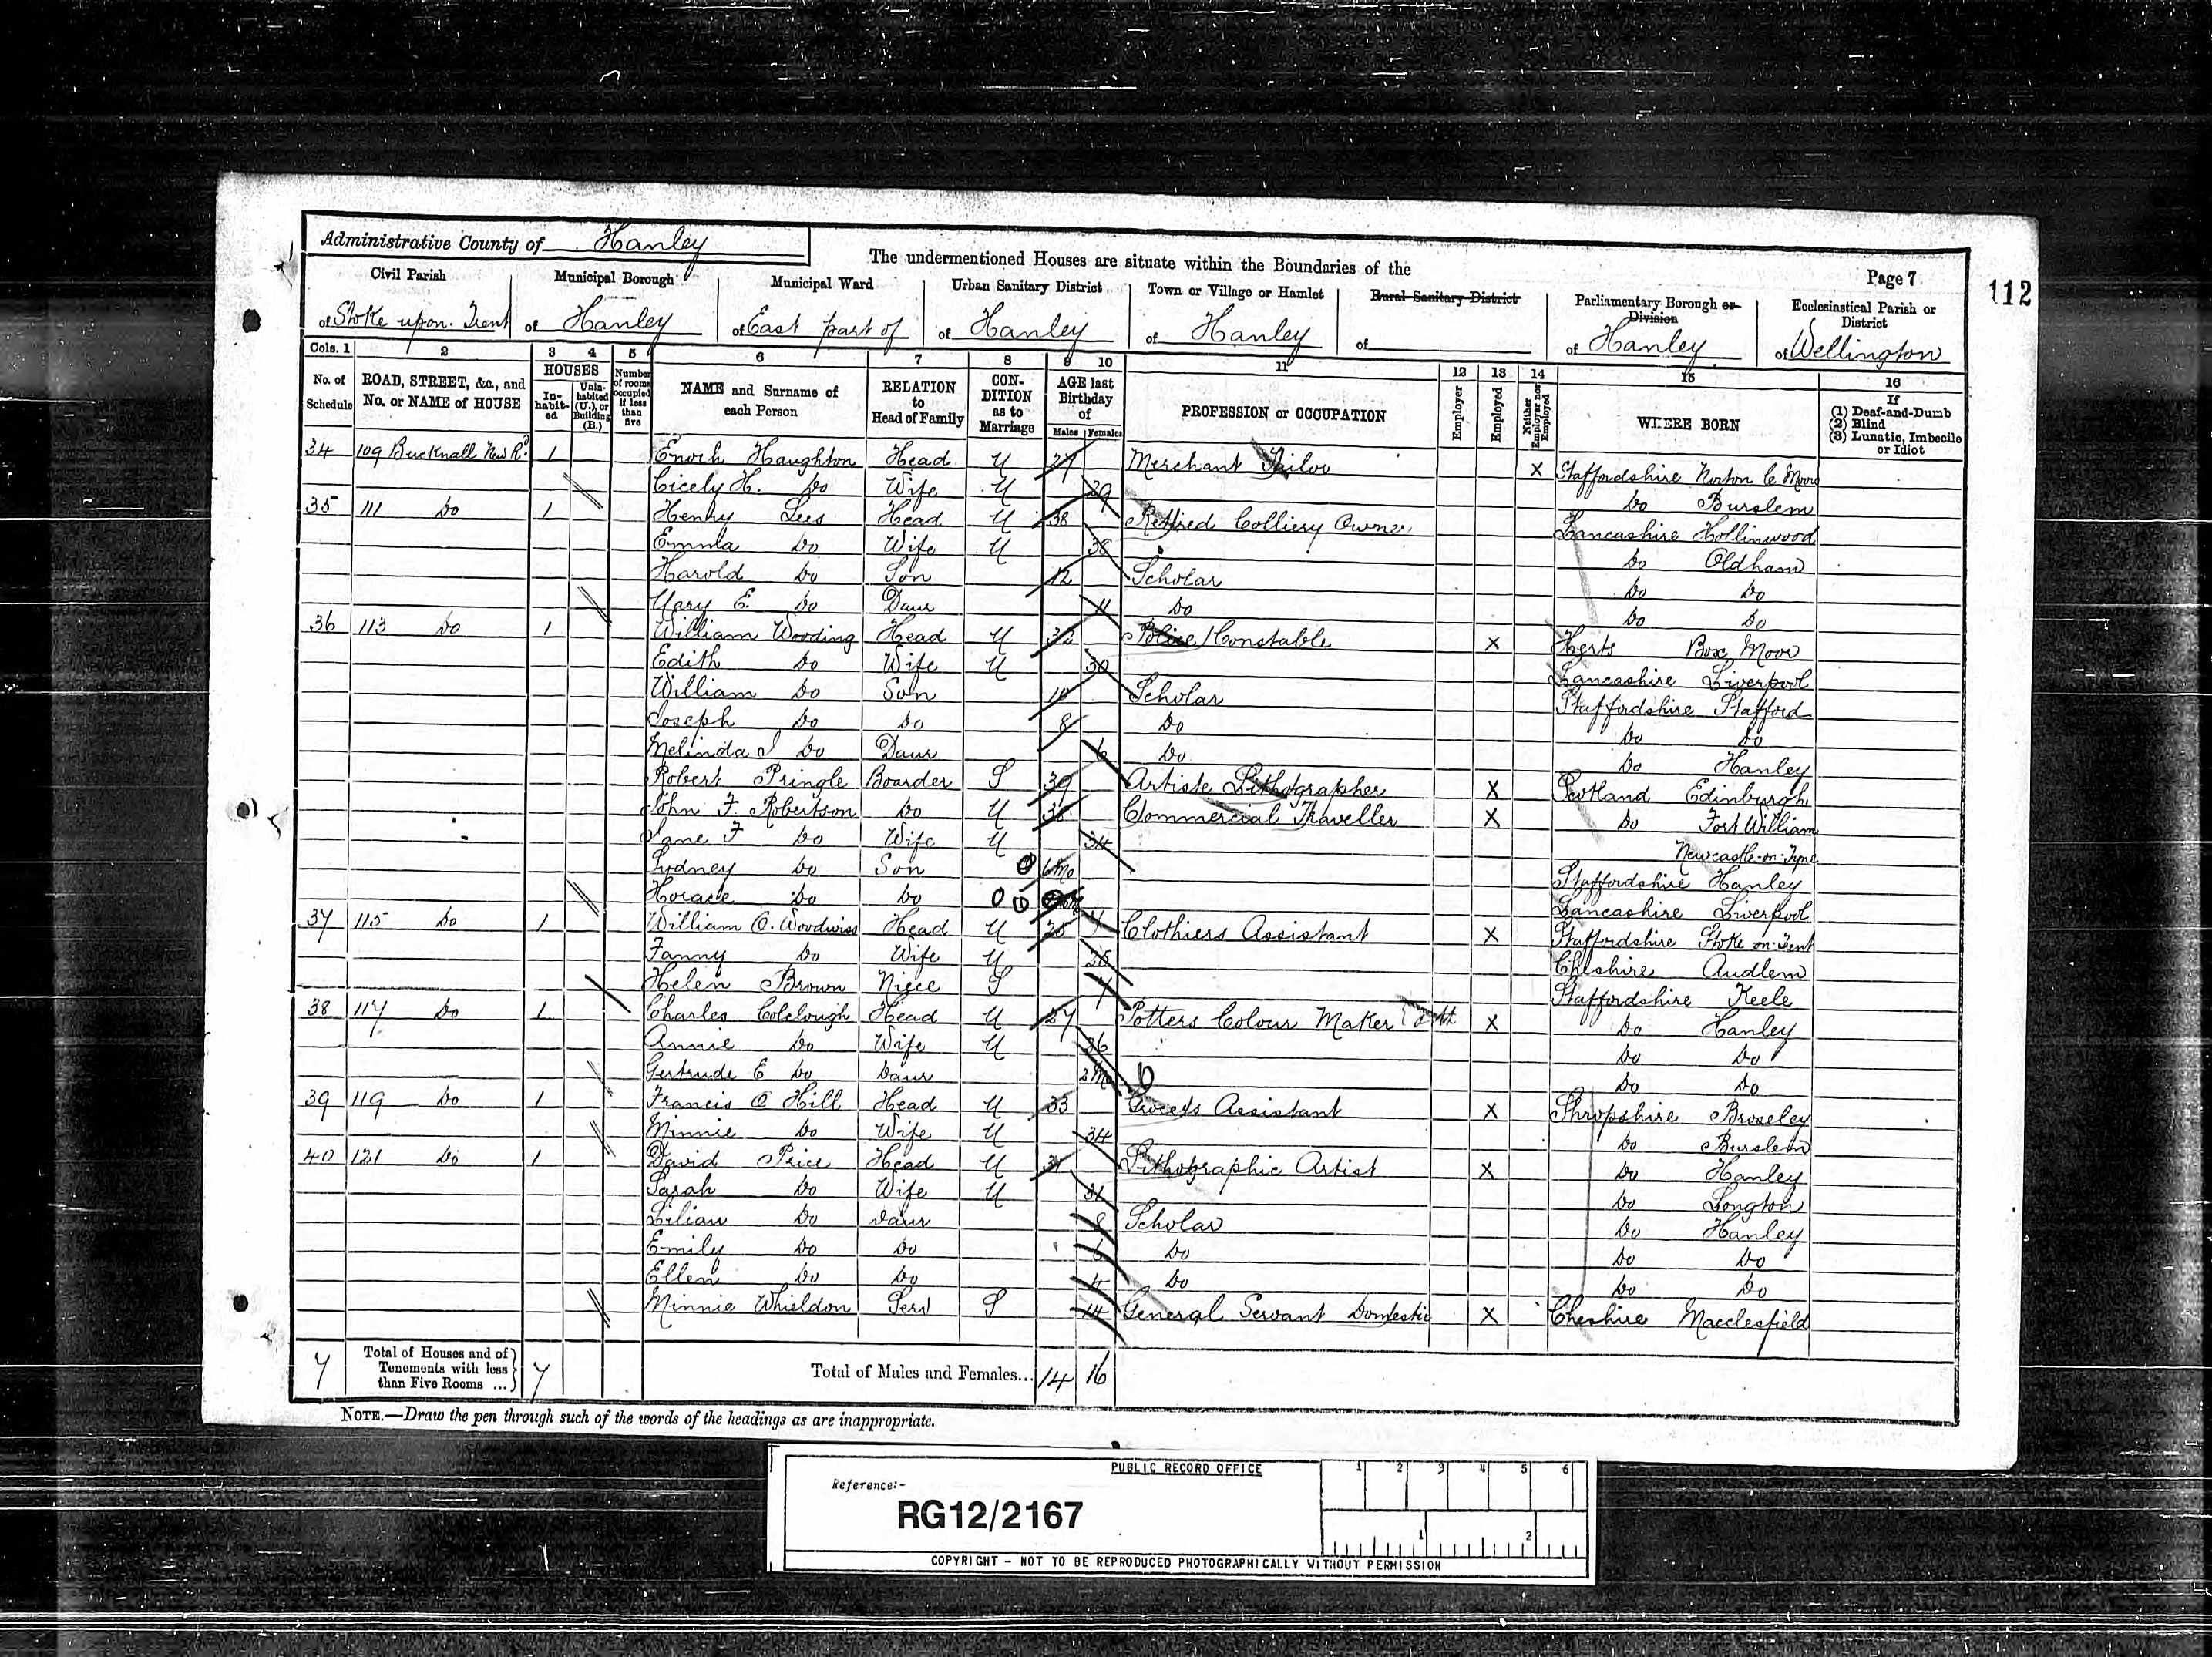 Administrative County of Hanley
The undermentioned Houses are situate within the Boundaries of the
Page 7
112
Civil Parish of Stoke upon Trent
Municipal Borough of Hanley
Municipal Ward of East part of
Urban Sanitary District of Hanley
Town or Village or Hamlet of Hanley
Rural Sanitary District of
Parliamentary Borough or Division of Hanley
Ecclesiastical Parish or District of Wellington
Cols. 1 2 3 4 5 6 7 8 9 10 11 12 13 14 15 16
No. of Schedule
ROAD, STREET, &c., and No. or NAME of HOUSE
HOUSES
In-habit-ed
Unin-habited (U.), or Building (B.)
Number of rooms occupied if less than five
NAME and Surname of each Person
RELATION to Head of Family
CON-DITION as to Marriage
AGE last Birthday of
Males Females
PROFESSION or OCCUPATION
Employer
Employed
Neither Employer nor Employed
WHERE BORN
If
(1) Deaf-and-Dumb
(2) Blind
(3) Lunatic, Imbecile or Idiot
34 109 Bucknall New Rd. 1 Enoch Haughton Head M Merchant Tailor X Staffordshire Norton Le Moors
Cicely H. Do Wife M 29 Do Burslem
35 111 Do 1 Henry Lees Head M 38 Retired Colliery Owner Lancashire Hollinwood
Emma Do Wife M 38 Do Oldham
Harold Do Son 12 Scholar Do Do
Mary E. Do Daur 11 Do Do Do
36 113 Do 1 William Wooding Head M 32 Police Constable X Herts Box Moor
Edith Do Wife M 30 Lancashire Liverpool
William Do Son 10 Scholar Staffordshire Stafford
Joseph Do Do 8 Do Do Do
Melinda J Do Daur 6 Do Do Hanley
Robert Pringle Boarder S 39 Artiste Lithographer X Scotland Edinburgh
John F. Robertson Do M 38 Commercial Traveller X Do Fort William
Jane F Do Wife M 34 Newcastle-on-Tyne
Sydney Do Son 6 Mo Staffordshire Hanley
Horace Do Do Lancashire Liverpool
37 115 Do 1 William C. Woodwiss Head M 25 Clothiers Assistant X Staffordshire Stoke on Trent
Fanny Do Wife M 25 Cheshire Audlem
Helen Brown Niece S 7 Staffordshire Keele
38 117 Do 1 Charles Colclough Head M 27 Potters Colour Maker X Do Hanley
Annie Do Wife M 26 Do Do
Gertrude E Do Daur 2 Mo Do Do
39 119 Do 1 Francis C Hill Head M 33 Grocers Assistant X Shropshire Broseley
Minnie Do Wife M 34 Do Burslem
40 121 Do 1 David Price Head M 31 Lithographic Artist X Do Hanley
Sarah Do Wife M 31 Do Longton
Lilian Do Daur 8 Scholar Do Hanley
Emily Do Do 6 Do Do Do
Ellen Do Do 4 Do Do Do
Minnie Whieldon Serv S 14 General Servant Domestic X Cheshire Macclesfield
7 Total of Houses and of Tenements with less than Five Rooms ... 7 Total of Males and Females... 14 16
NOTE.—Draw the pen through such of the words of the headings as are inappropriate.
PUBLIC RECORD OFFICE
Reference:-
RG12/2167
1 2 3 4 5 6
1 2
COPYRIGHT - NOT TO BE REPRODUCED PHOTOGRAPHICALLY WITHOUT PERMISSION